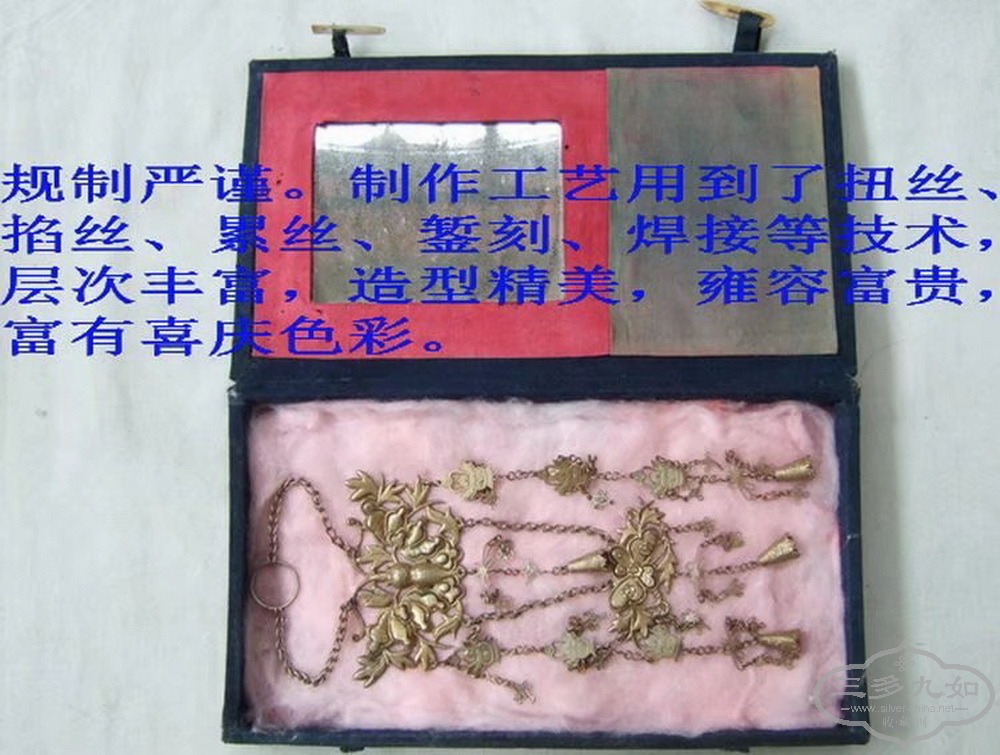 规制严谨。制作工艺用到了扭丝、
掐丝、累丝、錾刻、焊接等技术，
层次丰富，造型精美，雍容富贵，
富有喜庆色彩。
三多九如
www.silverchina.net
收藏别